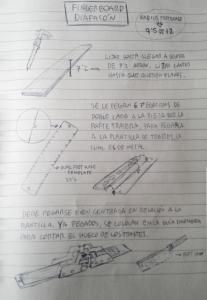 FINGERBOARD
DIAPASÓN
RADIUS FRETBOARD
9'5 OR 12
LIJAR HASTA LLEGAR A
DE 7'2 LIJAR CANTOS
HASTA QUE QUEDEN PLANOS.
7'2
SE LE PEGAN 6 PEGATINAS DE
DOBLE CARA A LA PIEZA POR LA
PARTE TRASERA, PARA PEGARLA
A LA PLANTILLA DE TRASTES, LA
CUAL ES DE METAL
DUAL FRET WIRE
TEMPLATE
DEBE PEGARSE BIEN CENTRADA EN RELACIÓN A LA
PLANTILLA. YA PEGADOS, SE COLOCAN EN LA GUÍA
PARA CORTAR EL HUECO DE LOS TRASTES.